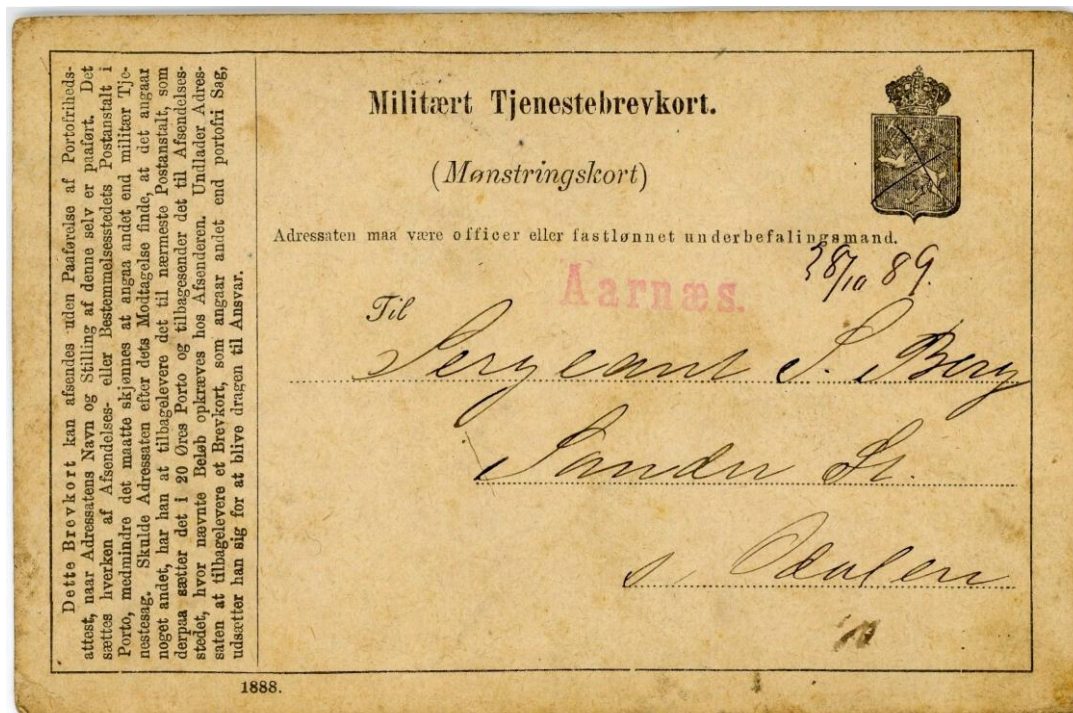 Dette Brevkort kan afsendes uden Paaførelse af Portofriheds-
attest, naar Adressatens Navn og Stilling af denne selv er paaført. Det
sættes hverken af Afsendelses- eller Bestemmelsesstedets Postanstalt i
Porto, medmindre det maatte skjønnes at angaa andet end militær Tje-
nestesag. Skulde Adressaten efter dets Modtagelse finde, at det angaar
noget andet, har han at tilbagelevere det til nærmeste Postanstalt, som
derpaa sætter det i 20 Øres Porto og tilbagesender det til Afsendelses-
stedet, hvor nævnte Beløb opkræves hos Afsenderen. Undlader Adres-
saten at tilbagelevere et Brevkort, som angaar andet end portofri Sag,
udsætter han sig for at blive dragen til Ansvar.
Militært Tjenestebrevkort.
(Mønstringskort)
Adressaten maa være officer eller fastlønnet underbefalingsmand.
28/10 89.
Aarnæs.
Til
Sergeant S. Berg
Sander St.
s. Odalen
1888.